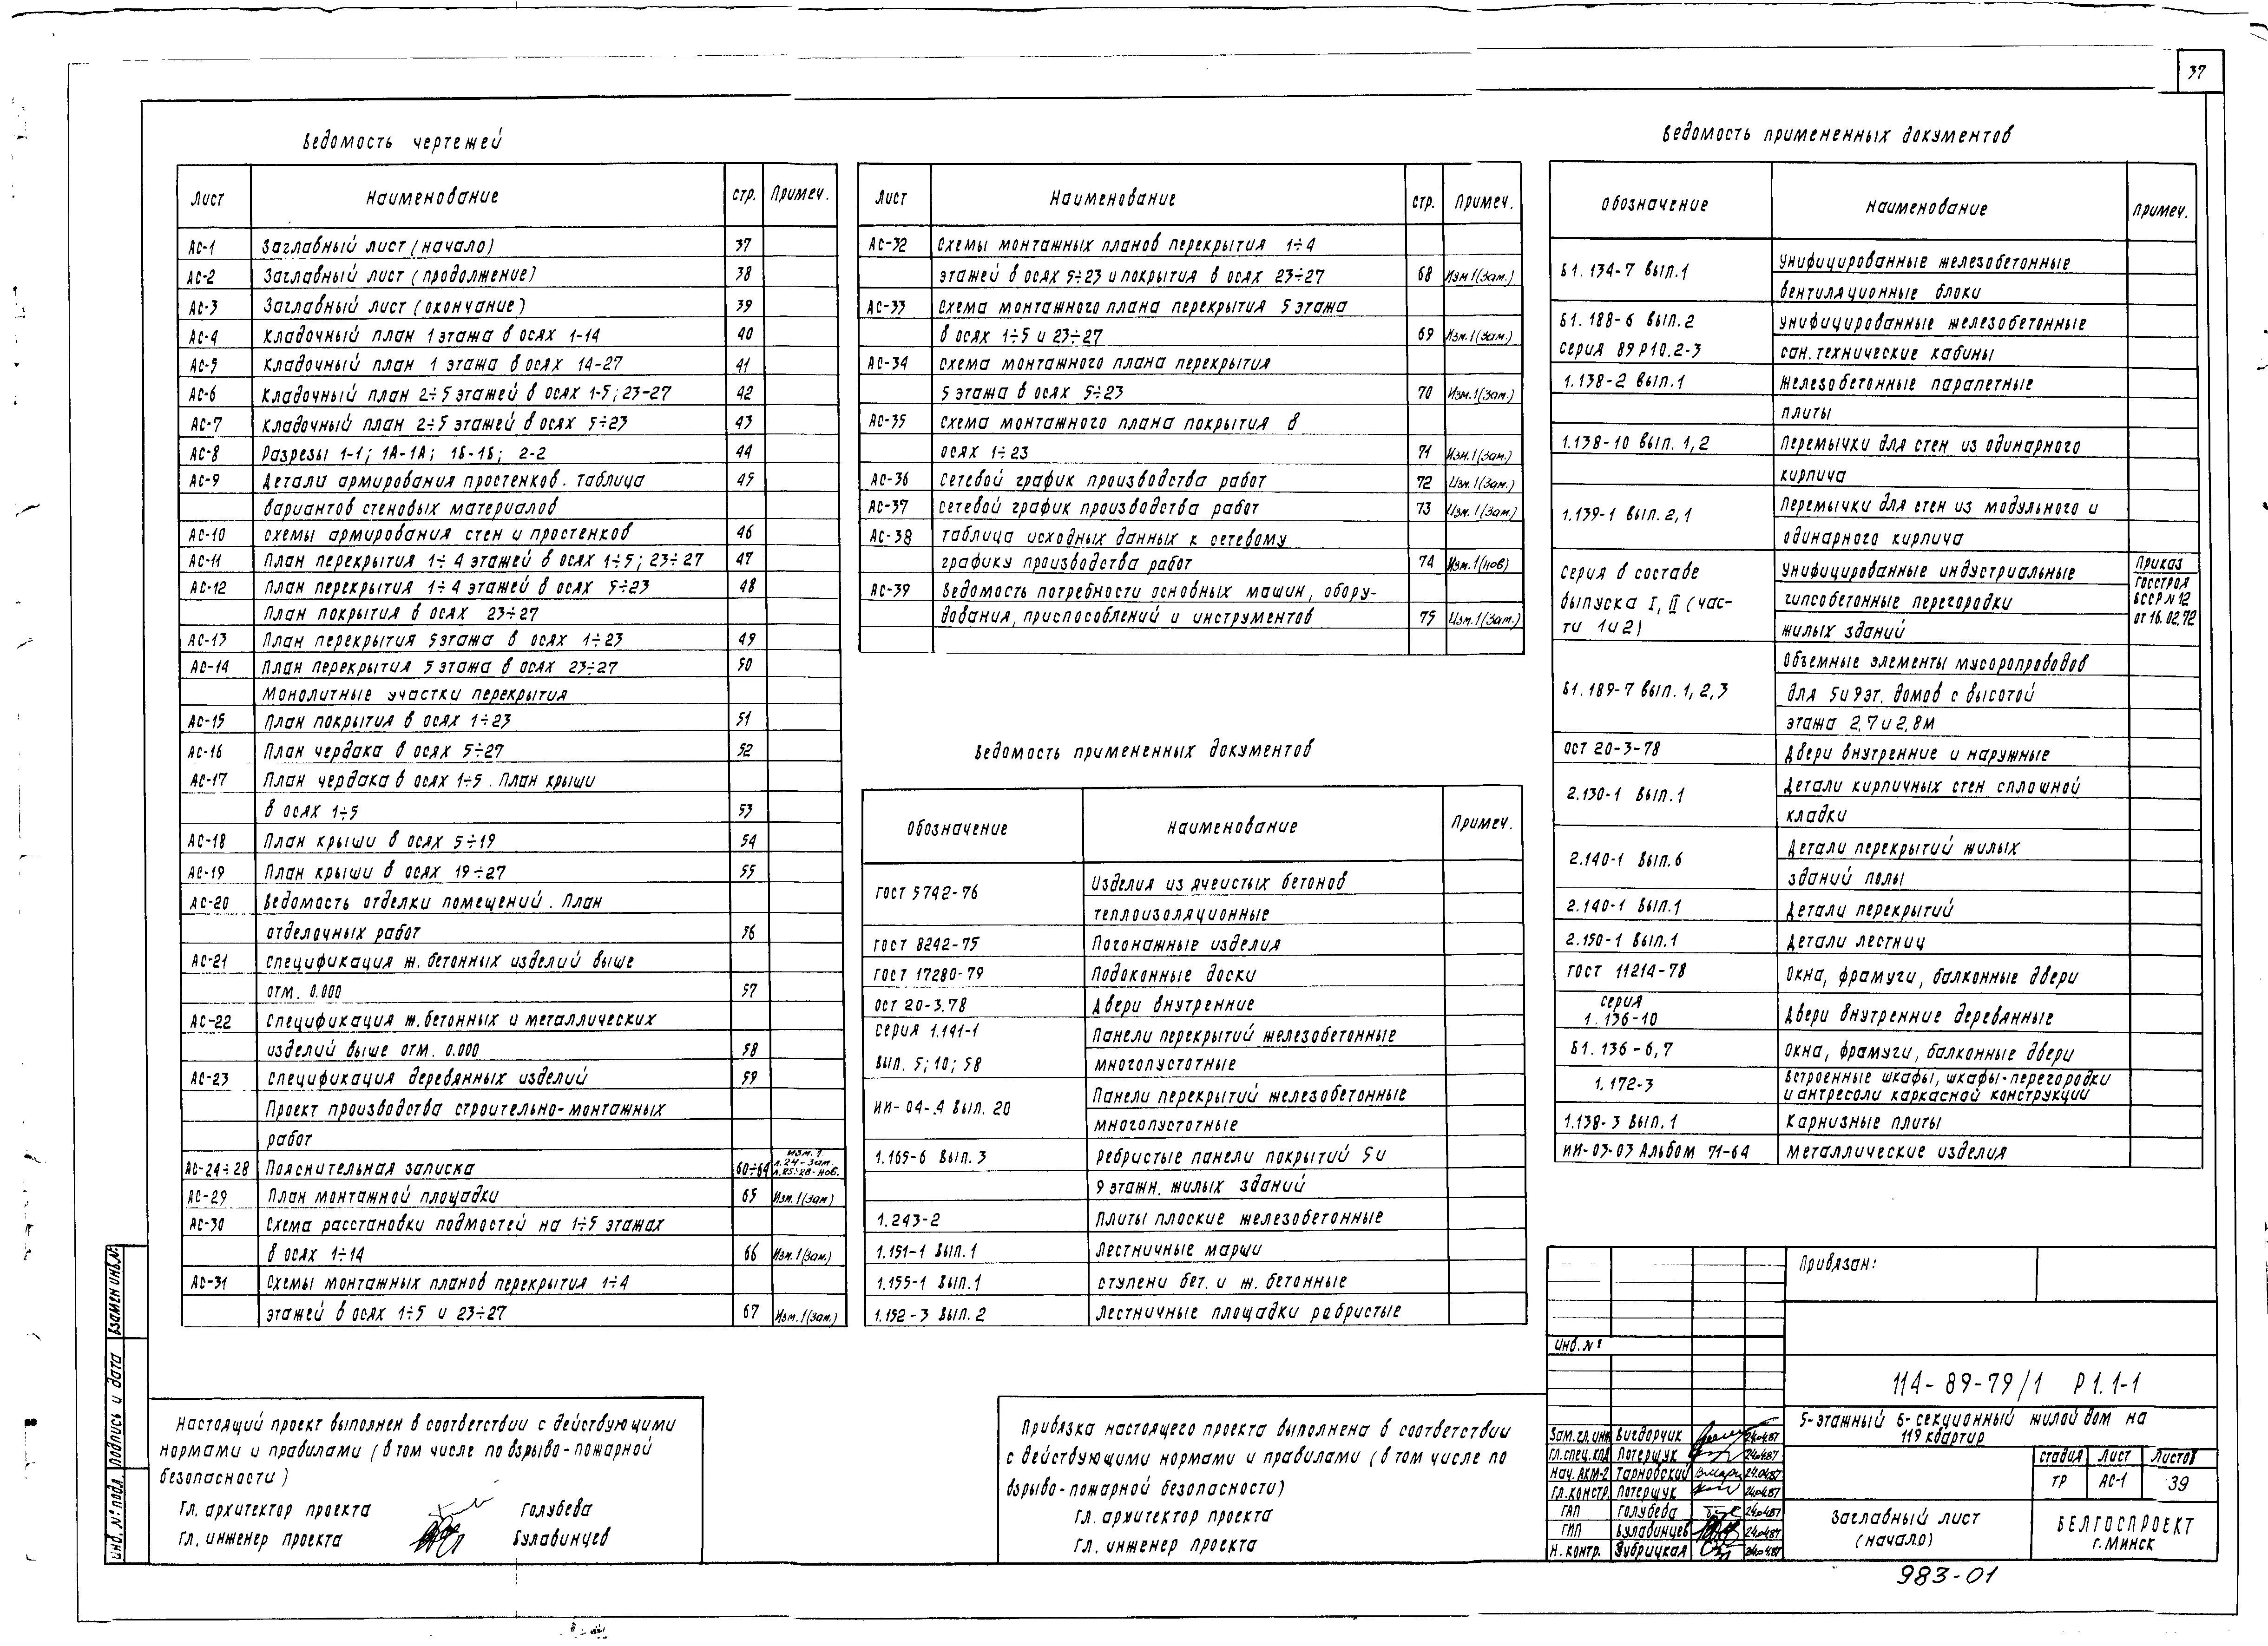 37
Ведомость чертежей
Лист Наименование стр. Примеч.
АС-1 Заглавный лист (начало) 37
АС-2 Заглавный лист (продолжение) 38
АС-3 Заглавный лист (окончание) 39
АС-4 Кладочный план 1 этажа в осях 1-14 40
АС-5 Кладочный план 1 этажа в осях 14-27 41
АС-6 Кладочный план 2÷5 этажей в осях 1-5; 23-27 42
АС-7 Кладочный план 2÷5 этажей в осях 5÷23 43
АС-8 Разрезы 1-1; 1А-1А; 1Б-1Б; 2-2 44
АС-9 Детали армирования простенков. Таблица 45
вариантов стеновых материалов
АС-10 Схемы армирования стен и простенков 46
АС-11 План перекрытия 1÷4 этажей в осях 1÷5; 23÷27 47
АС-12 План перекрытия 1÷4 этажей в осях 5÷23 48
План покрытия в осях 23÷27
АС-13 План перекрытия 5 этажа в осях 1÷23 49
АС-14 План перекрытия 5 этажа в осях 23÷27 50
Монолитные участки перекрытия
АС-15 План покрытия в осях 1÷23 51
АС-16 План чердака в осях 5÷27 52
АС-17 План чердака в осях 1÷5. План крыши
в осях 1÷5 53
АС-18 План крыши в осях 5÷19 54
АС-19 План крыши в осях 19÷27 55
АС-20 Ведомость отделки помещений. План
отделочных работ 56
АС-21 Спецификация ж. бетонных изделий выше
отм. 0.000 57
АС-22 Спецификация ж. бетонных и металлических
изделий выше отм. 0.000 58
АС-23 Спецификация деревянных изделий 59
Проект производства строительно-монтажных
работ
АС-24÷28 Пояснительная записка 60÷64 Изм. 1. л.24-Зам. л.25÷28-нов.
АС-29 План монтажной площадки 65 Изм. 1 (Зам)
АС-30 Схема расстановки подмостей на 1÷5 этажах
в осях 1÷14 66 Изм. 1 (Зам)
АС-31 Схемы монтажных планов перекрытия 1÷4
этажей в осях 1÷5 и 23÷27 67 Изм. 1 (Зам.)
Лист Наименование стр. Примеч.
АС-32 Схемы монтажных планов перекрытия 1÷4
этажей в осях 5÷23 и покрытия в осях 23÷27 68 Изм 1 (Зам.)
АС-33 Схема монтажного плана перекрытия 5 этажа
в осях 1÷5 и 23÷27 69 Изм. 1 (Зам.)
АС-34 Схема монтажного плана перекрытия
5 этажа в осях 5÷23 70 Изм. 1 (Зам.)
АС-35 Схема монтажного плана покрытия в
осях 1÷23 71 Изм. 1 (Зам.)
АС-36 Сетевой график производства работ 72 Изм. 1 (Зам.)
АС-37 Сетевой график производства работ 73 Изм. 1 (Зам.)
АС-38 Таблица исходных данных к сетевому
графику производства работ 74 Изм. 1 (нов)
АС-39 Ведомость потребности основных машин, обору-
дования, приспособлений и инструментов 75 Изм. 1 (Зам.)
Ведомость примененных документов
Обозначение Наименование Примеч.
ГОСТ 5742-76 Изделия из ячеистых бетонов
теплоизоляционные
ГОСТ 8242-75 Погонажные изделия
ГОСТ 17280-79 Подоконные доски
ОСТ 20-3.78 Двери внутренние
Серия 1.141-1 Панели перекрытий железобетонные
Вып. 5; 10; 58 многопустотные
ИИ-04-.4 Вып. 20 Панели перекрытий железобетонные
многопустотные
1.165-6 Вып. 3 Ребристые панели покрытий 5 и
9 этажн. жилых зданий
1.243-2 Плиты плоские железобетонные
1.151-1 Вып. 1 Лестничные марши
1.155-1 Вып. 1 Ступени бет. и ж. бетонные
1.152-3 Вып. 2 Лестничные площадки ребристые
Ведомость примененных документов
Обозначение Наименование Примеч.
Б1. 134-7 вып. 1 Унифицированные железобетонные
вентиляционные блоки
Б1. 188-6 вып. 2 Унифицированные железобетонные
серия 89 Р10. 2-3 сан. технические кабины
1.138-2 вып. 1 Железобетонные парапетные
плиты
1.138-10 вып. 1, 2 Перемычки для стен из одинарного
кирпича
1.139-1 вып. 2, 1 Перемычки для стен из модульного и
одинарного кирпича
Серия в составе Унифицированные индустриальные Приказ
выпуска I, II (час- гипсобетонные перегородки Госстроя БССР №12
ти 1 и 2) жилых зданий от 16.02.72
Объемные элементы мусоропроводов
Б1. 189-7 вып. 1, 2, 3 для 5 и 9 эт. домов с высотой
этажа 2,7 и 2,8 м
ОСТ 20-3-78 Двери внутренние и наружные
2.130-1 Вып. 1 Детали кирпичных стен сплошной
кладки
2.140-1 Вып. 6 Детали перекрытий жилых
зданий полы
2.140-1 Вып. 1 Детали перекрытий
2.150-1 Вып. 1 Детали лестниц
ГОСТ 11214-78 Окна, фрамуги, балконные двери
Серия
1.136-10 Двери внутренние деревянные
Б1. 136-6, 7 Окна, фрамуги, балконные двери
1.172-3 Встроенные шкафы, шкафы-перегородки
и антресоли каркасной конструкции
1.138-3 Вып. 1 Карнизные плиты
ИИ-03-03 Альбом 71-64 Металлические изделия
Настоящий проект выполнен в соответствии с действующими
нормами и правилами (в том числе по взрыво-пожарной
безопасности)
Гл. архитектор проекта Голубева
Гл. инженер проекта Булавинцев
Привязка настоящего проекта выполнена в соответствии
с действующими нормами и правилами (в том числе по
взрыво-пожарной безопасности)
Гл. архитектор проекта
Гл. инженер проекта
Инв. № подл. Подпись и дата Взамен инв. №
Привязан:
Инв. №
114-89-79/1 Р1. 1-1
Зам. гл. инж Вигдорчик 24.04.87
Гл. спец. кпд Потерщук 24.04.87
Нач. АКМ-2 Тарновский 24.04.87
Гл. констр. Потерщук 24.04.87
ГАП Голубева 24.04.87
ГИП Булавинцев 24.04.87
Н. контр. Зубрицкая 24.04.87
5-этажный 6-секционный жилой дом на
119 квартир
стадия Лист Листов
ТР АС-1 39
Заглавный лист
(начало)
БЕЛГОСПРОЕКТ
г. Минск
983-01